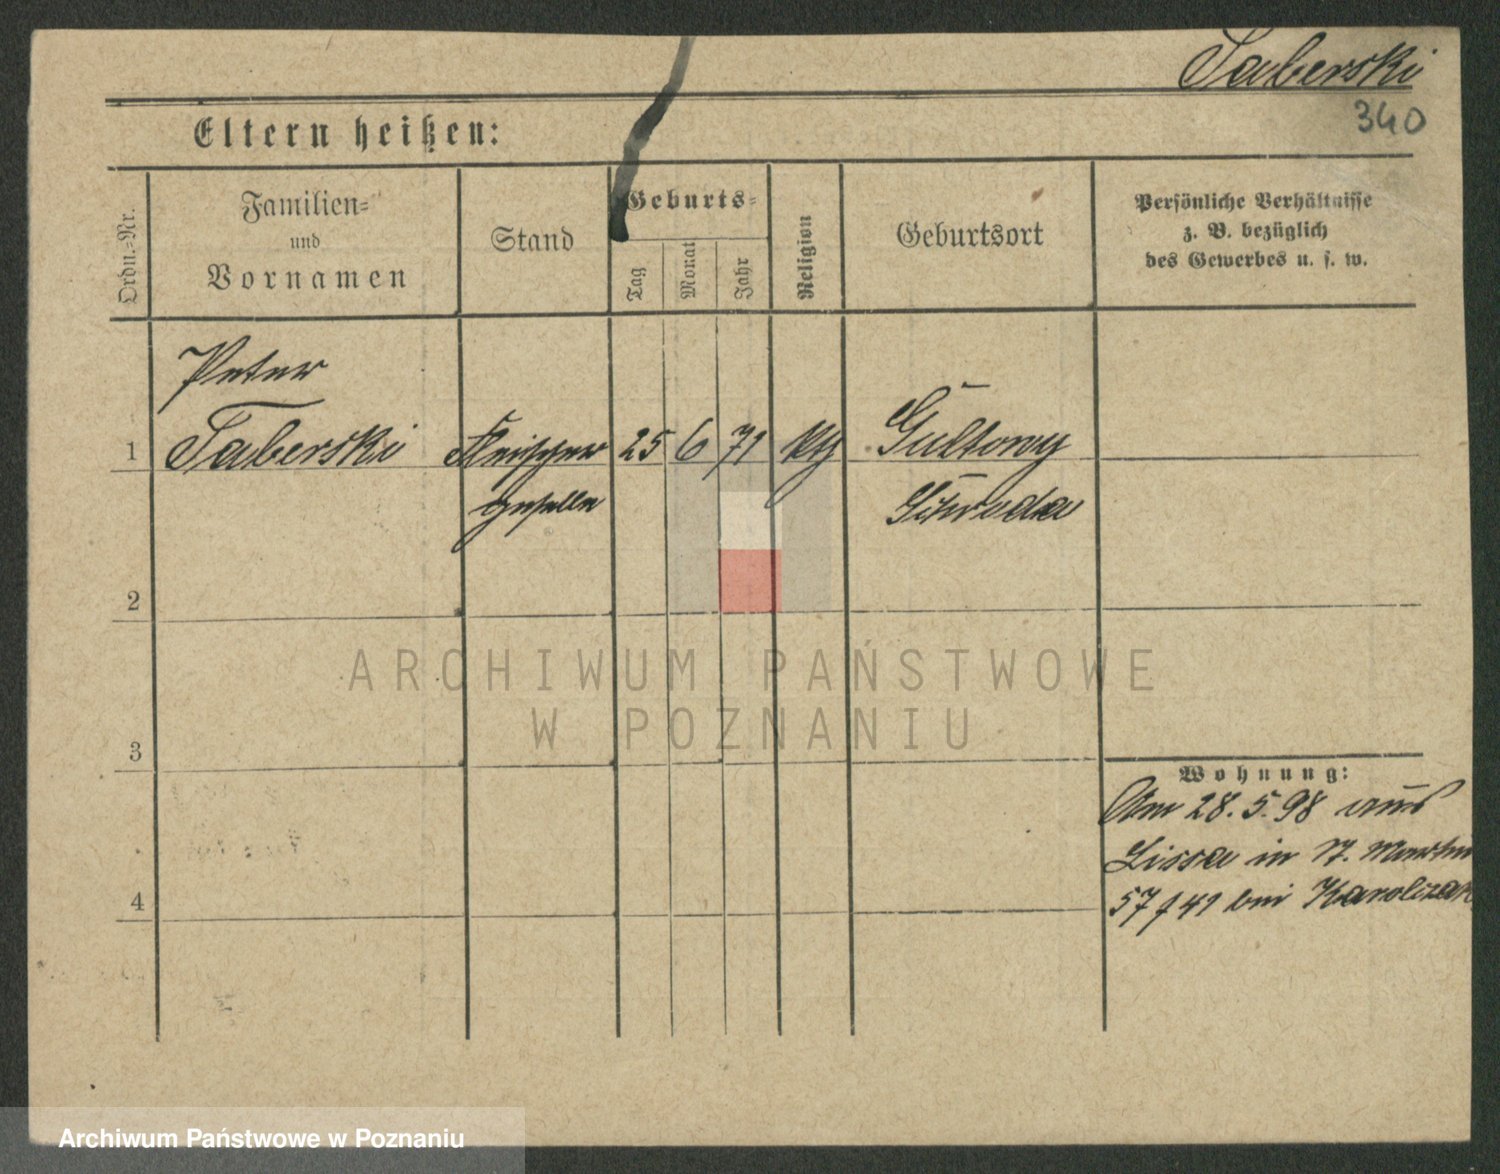 Taberski
340
Eltern heißen:
Ordn.=Nr.
Familien=
und
Vornamen
Stand
Geburts=
Tag
Monat
Jahr
Religion
Geburtsort
Persönliche Verhältnisse
z. B. bezüglich
des Gewerbes u. s. w.
Peter
1 Taberski Fleischer 25 6 71 Gultowy
geselle Schroda
2
ARCHIWUM PAŃSTWOWE
W POZNANIU
3
Wohnung:
Am 28.5.98 aus
Lissa in St. Martin
4
57 / 41 bei Karolczak
Archiwum Państwowe w Poznaniu